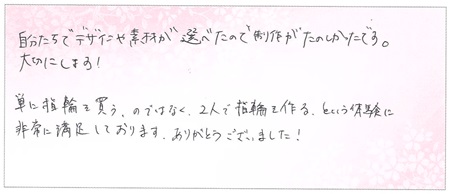 自分たちでデザインや素材が選べたので制作がたのしかったです。
大切にします!
単に指輪を買う、のではなく、2人で指輪を作る、という体験に
非常に満足しております。ありがとうございました!